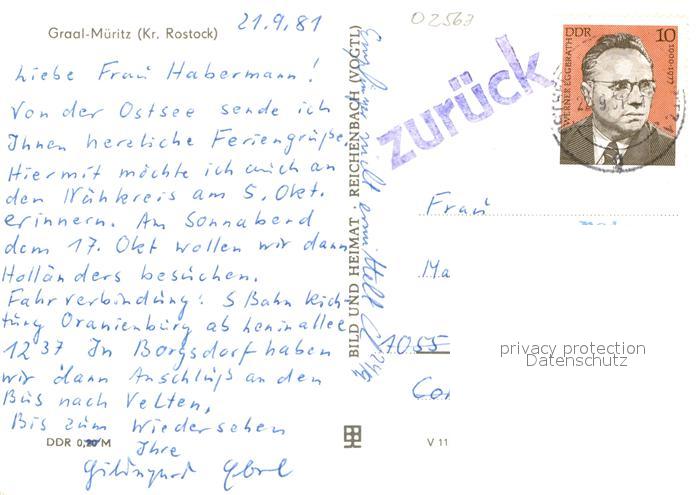 Graal-Müritz (Kr. Rostock)
21.9.81
Liebe Frau Habermann!
Von der Ostsee sende ich
Ihnen herzliche Feriengrüße.
Hiermit möchte ich mich an
den Nähkreis am 5. Okt.
erinnern. Am Sonnabend
dem 17. Okt wollen wir dann
Holländers besuchen.
Fahrverbindung: S Bahn Rich-
tung Oranienburg ab Leninallee
12 37 In Borgsdorf haben
wir dann Anschluß an den
Bus nach Velten.
Bis zum Wiedersehen
Ihre
DDR 0,20 M
BILD UND HEIMAT · REICHENBACH (VOGTL)
V 11
02563
zurück
DDR 10
WERNER EGGERATH
1900-1977
Frau
Ma
1055
privacy protection
Datenschutz